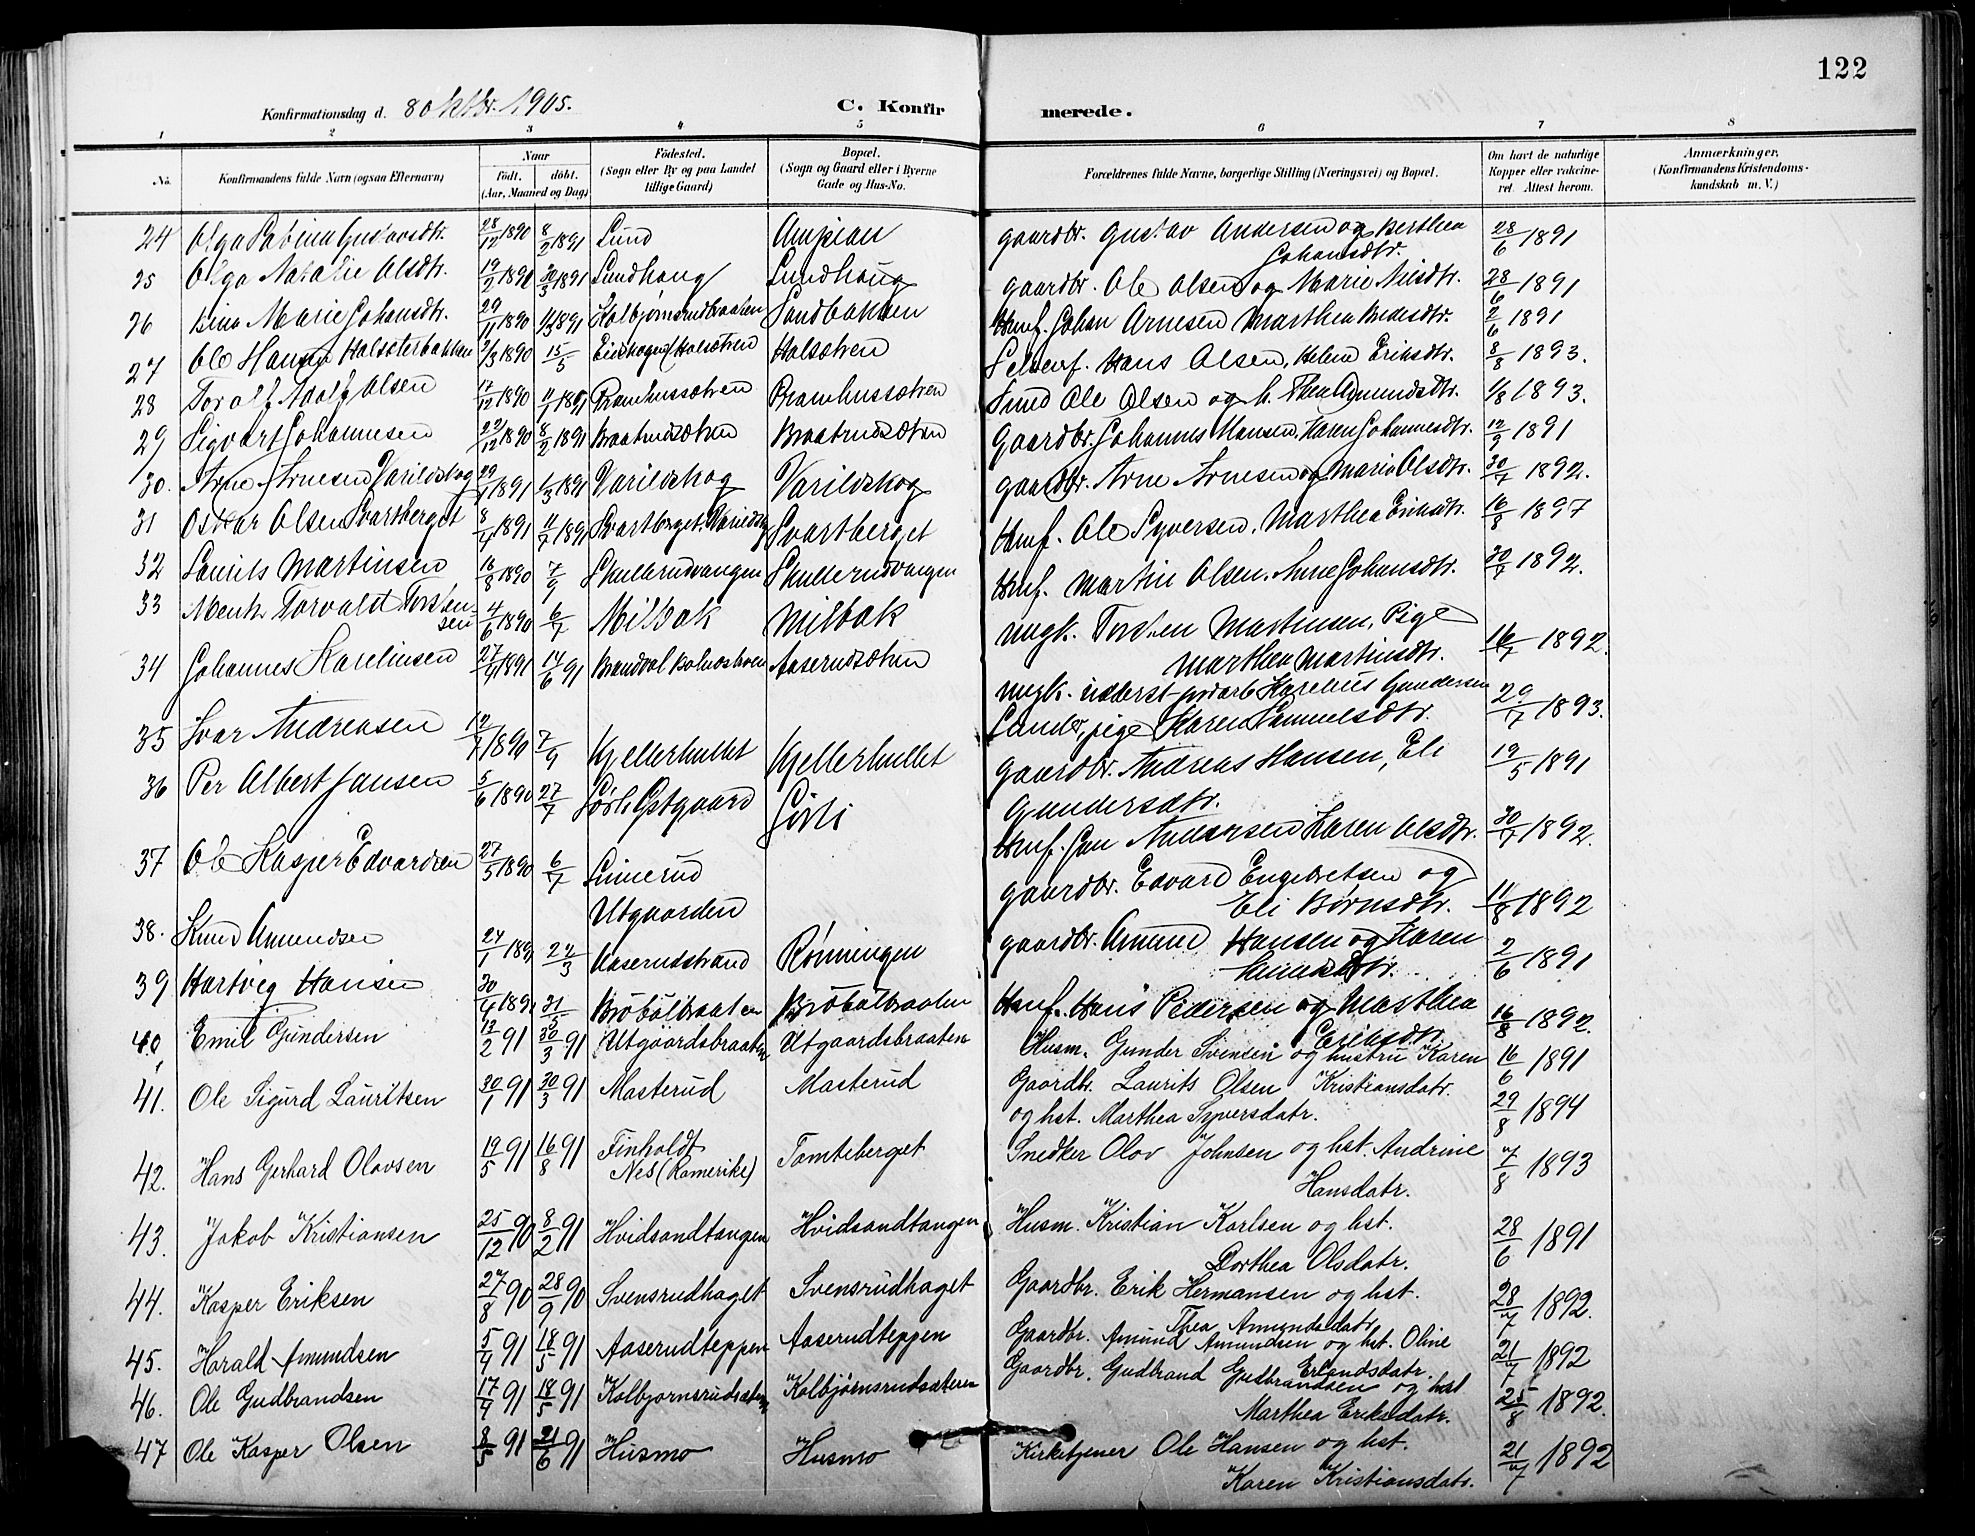 122
Konfirmationsdag d. 8 Oktbr. 1905.
C. Konfirmerede.
1 2 3 4 5 6 7 8
No. Konfirmandens fulde Navn (ogsaa Efternavn) Naar født. døbt. (Aar, Maaned og Dag) Fødested. (Sogn eller By og paa Landet tillige Gaard) Bopæl. (Sogn og Gaard eller i Byerne Gade og Hus-No. Forældrenes fulde Navne, borgerlige Stilling (Næringsvei) og Bopæl. Om havt de naturlige Kopper eller vakcineret. Attest herom. Anmærkninger. (Konfirmandens Kristendomskundskab m. V.)
24 Olga Sabina Gustavsdtr. 28/12 1890 8/2 1891 Lund gaardbr. Gustav Andersen og Berthea Johansdtr. 28/6 1891
25 Olga Natalie Olsdtr. 30/3 1891 Lundhaug Lundhaug gaardbr. Ole Olsen og Marie Nilsdtr. 28/6 1891
26 Marie Johansdtr. 29/11 1890 Kolbjørnsrudbraaten Sandbakken Husmf. Johan Arnesen Marthea 2/6 1891
27 Ole Hansen Halsæterbakken 1890 15/5 Halsætren Halsætren Hans Olsen, Helene Eriksdtr. 8/8 1893.
28 Toralf Adolf Olsen 17/12 1890 1891 Bramhussætren Bramhussætren Smed Ole Olsen og h. Thea Amundsdtr. 1/8 1893.
29 Sigvart Johannesen 22/12 1890 8/2 1891 Braatrudsætren Braatrudsætren Gaardbr. Johannes Hansen, Karen Johannesdtr. 12/9 1891
30. Arne Arnesen Varildskog 29/1 1891 1/3 1891 Varildskog Varildskog gaardbr. Arne Arnesen og Marie Olsdtr. 30/7 1892.
31 Oskar Olsen Svartberget 8/4 1891 1891 Svartberget, Varildskog Svartberget Husmf. Ole Syversen, Marthea Eriksdtr. 16/8 1897
32 Laurits Martinsen 16/8 1890 7/9 Skullerudvangen Skullerudvangen Husmf. Martin Olsen. Anne Johansdtr. 30/7 1892.
33 Torvald Torstensen 4/6 1890 6/7 Milbak Milbak ungk. Torsten Martinsen, Pige Marthea Martinsdtr. 16/7 1892.
34 Johannes Karelinsen 27/4 1891 14/6 91 Brandval Aaserudsætren ungk. Karelius Gundersen Sander, pige Karen Samuelsdtr. 29/7 1893.
35 Ivar Andreasen 12/7 1890 7/9 Kjellerhullet Kjellerhullet gaardbr. Andreas Hansen, Eli Gundersdtr. 19/5 1891
36 Per Albert Jansen 5/6 1890 27/7 Sørli Østgaard Sørli Husmf. Jan Andersen Karen Olsdtr. 30/7 1892.
37 Ole Kasper Edvardsen 27/5 1890 6/7 Linnerud Utgaarden gaardbr. Edvard Engebretsen og Eli Børnsdtr. 11/8 1892
38. Knud Amundsen 24/1 22/3 Aaserudstrand Rønningen gaardbr. Amund Hansen og Karen 2/6 1891
39 Hartvig Hansen 30/4 31/5 Brøbølbraaten Brøbølbraaten Husmf. Hans Pedersen og Marthea Eriksdtr. 16/8 1892.
40 Emil Gundersen 13/2 91 30/3 91 Utgaardsbraaten Utgaardsbraaten Husm. Gunder Svensen og hustru Karen Kristiansdatr. 16/6 1891
41. Ole Sigurd Lauritsen 30/1 91 30/3 91 Masterud Masterud Gaardbr. Laurits Olsen og hst. Marthea Syversdatr. 29/8 1894
42. Hans Gerhard Olovsen 19/5 91 16/8 91 Finholdt Nes (Romerike) Tomteberget Snedker Olov Johnsen og hst. Andrine Hansdatr. 7/8 1893
43. Jakob Kristiansen 25/12 90 8/2 91 Hvidsandtangen Hvidsandtangen Husm. Kristian Karlsen og hst. Dorthea Olsdatr. 28/6 1891
44. Kasper Eriksen 27/8 90 28/9 90 Svensrudhaget Svensrudhaget Gaardbr. Erik Hermansen og hst. Thea Amundsdatr. 28/7 1892.
45. Harald Amundsen 5/4 91 18/5 91 Aaserudteppen Aaserudteppen Gaardbr. Amund Amundsen og hst. Oline Erlandsdatr. 21/7 1892
46. Ole Gudbrandsen 17/4 91 18/5 91 Kolbjørnsrudsæteren Kolbjørnsrudsæteren Gaardbr. Gudbrand Gudbrandsen og hst Marthea Eriksdatr. 25/8 1892.
47 Ole Kasper Olsen 8/5 91 21/6 91 Husmo Husmo Kirketjener Ole Hansen og hst. Karen Kristiansdatr. 21/7 1892